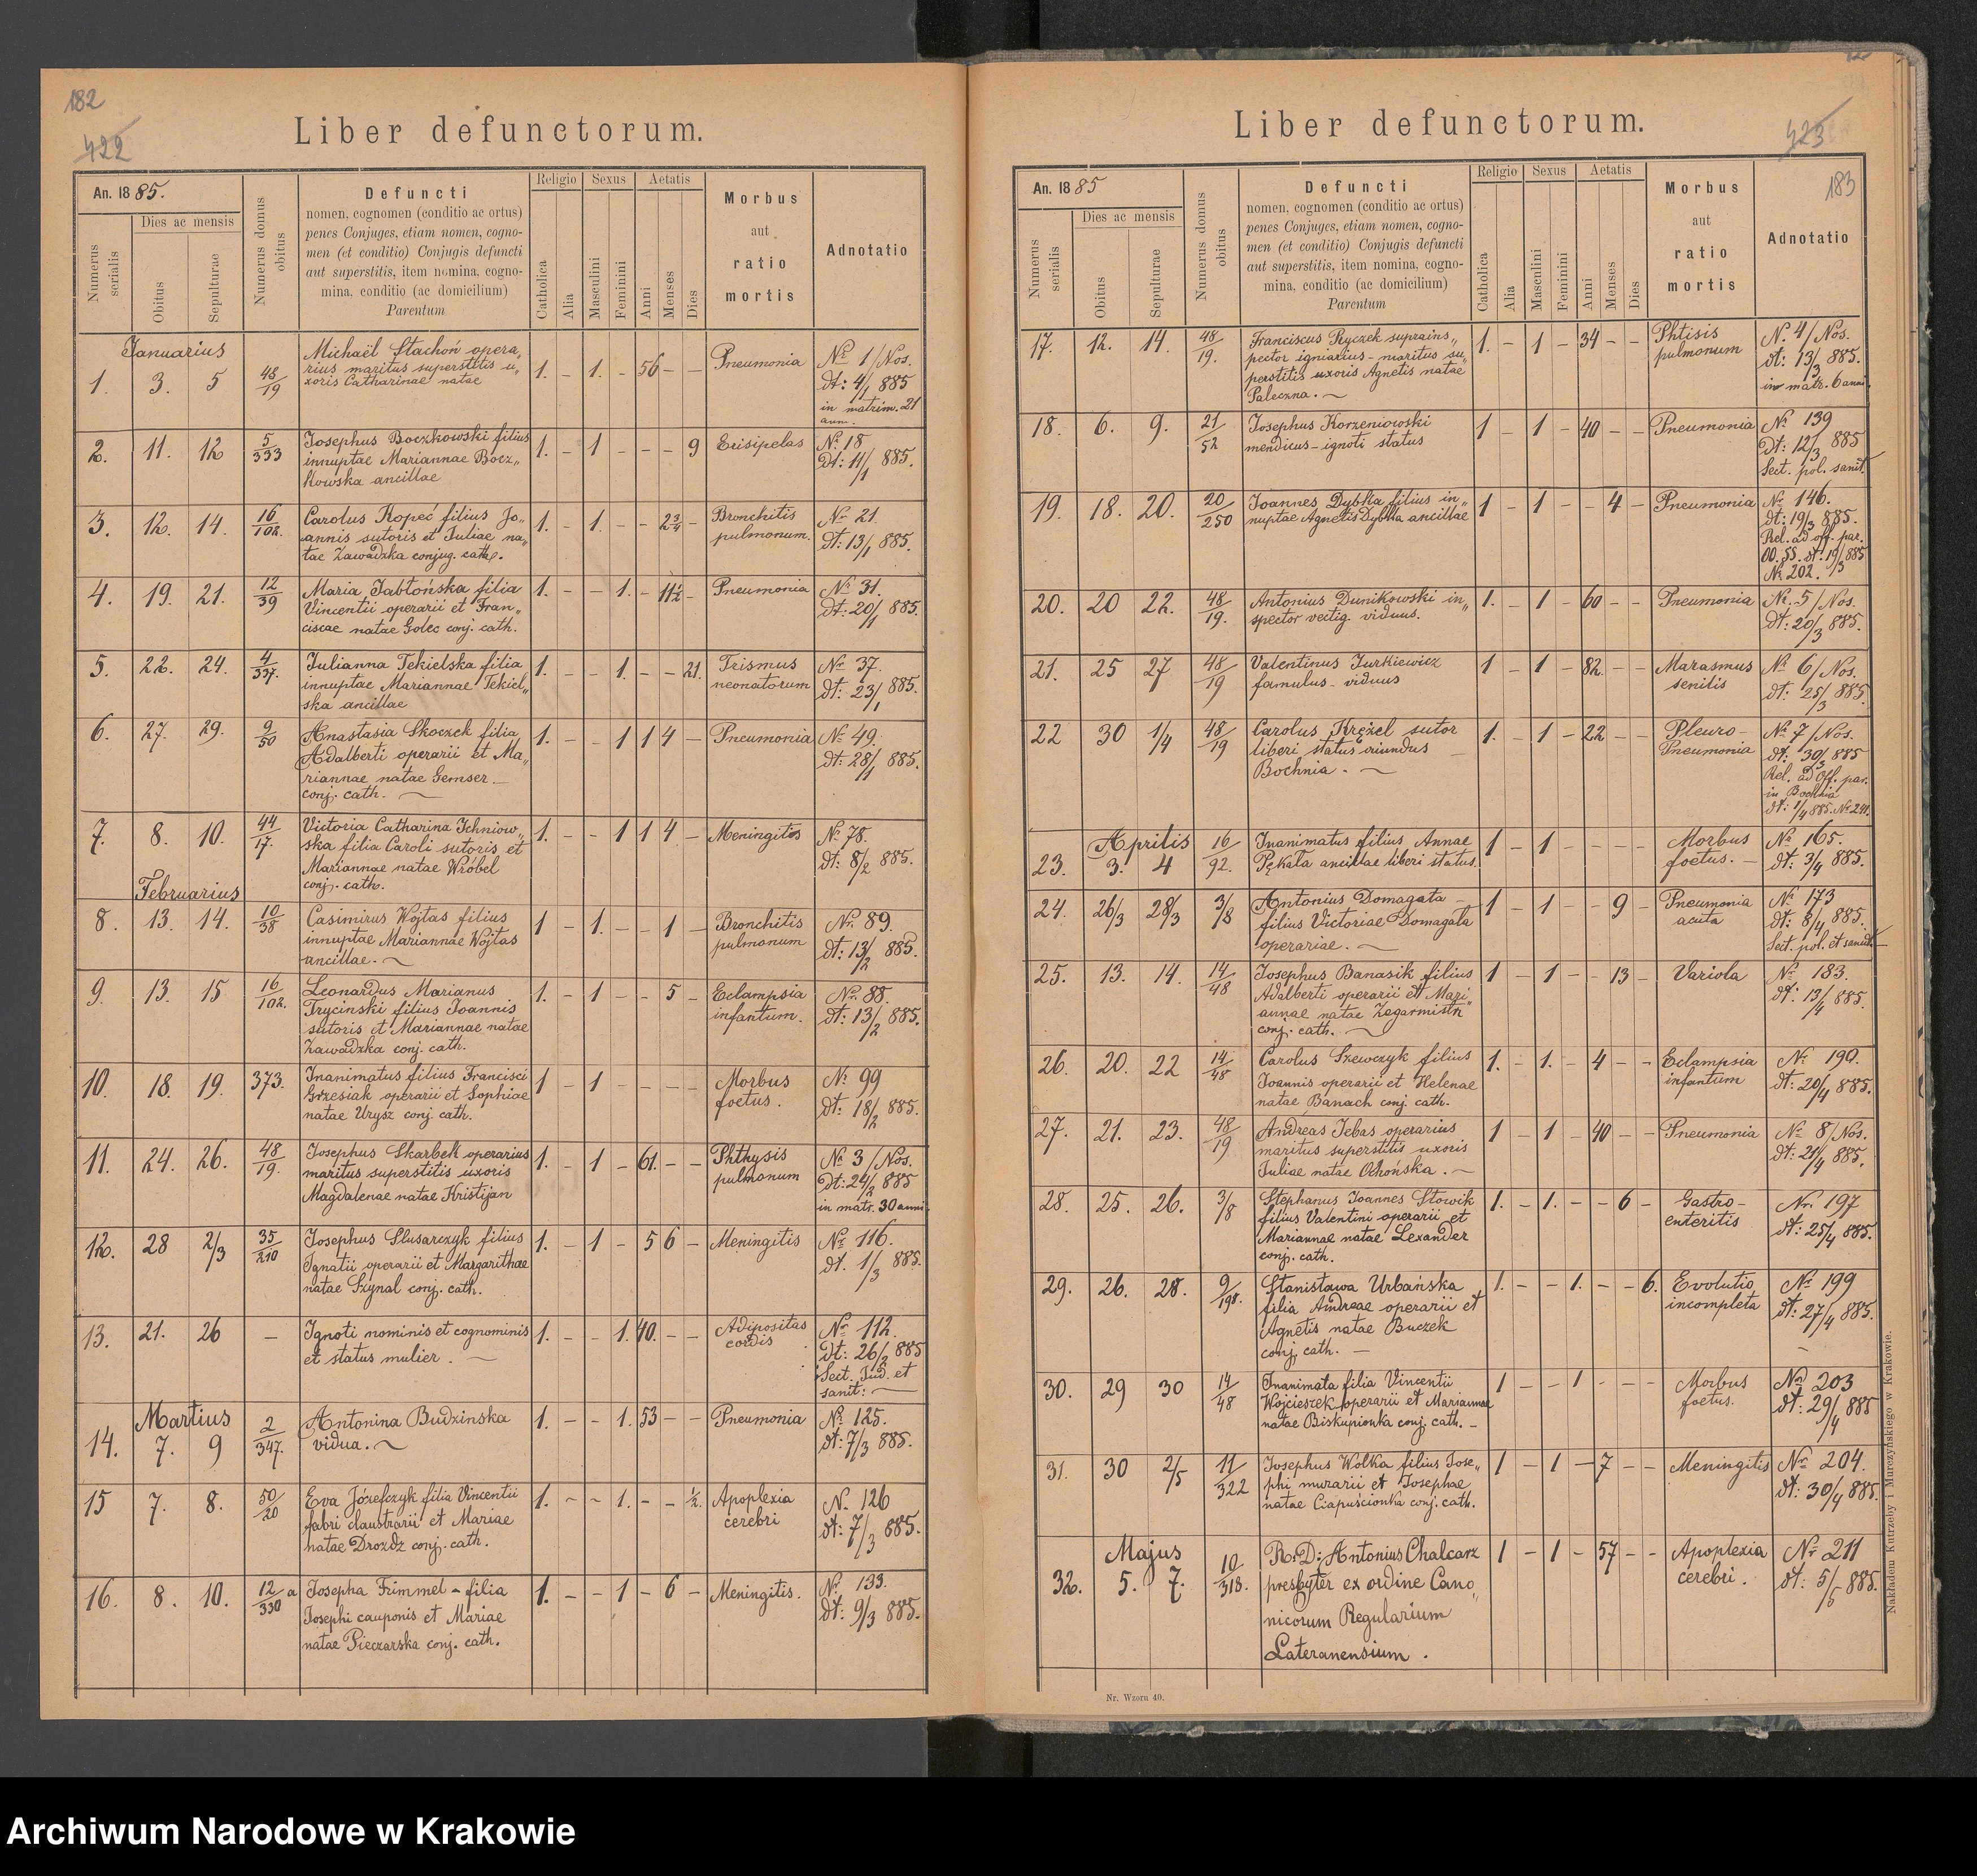 182
422
Liber defunctorum.
An. 1885.
Numerus serialis
Dies ac mensis
Obitus
Sepulturae
Numerus domus obitus
Defuncti
nomen, cognomen (conditio ac ortus)
penes Conjuges, etiam nomen, cogno-
men (et conditio) Conjugis defuncti
aut superstitis, item nomina, cogno-
mina, conditio (ac domicilium)
Parentum
Religio
Catholica
Alia
Sexus
Masculini
Feminini
Aetatis
Anni
Menses
Dies
Morbus
aut
ratio
mortis
Adnotatio
Januarius
1. 3. 5 48/19
Michaël Stachoń opera„
rius maritus superstitis u„
xoris Catharinae natae
1. – 1. – 56 – –
Pneumonia
Nr 1/Nos.
dt: 4/1 885
in matrim. 21
ann.
2. 11. 12 5/333
Josephus Boczkowski filius
innuptae Mariannae Bocz„
kowska ancillae
1. – 1 – – – 9
Erisipelas
Nr 18
Dt: 11/1 885.
3. 12. 14. 16/102.
Carolus Kopeć filius Jo„
annis sutoris et Juliae na„
tae Zawadzka conjug. cath.
1. – 1. – – 2 3/4 –
Bronchitis
pulmonum.
Nr 21.
dt: 13/1 885.
4. 19. 21. 12/39
Maria Jabłońska filia
Vincentii operarii et Fran„
ciscae natae Golec conj. cath.
1. – – 1. – 11 1/2 –
Pneumonia
Nr 31.
dt: 20/1 885.
5. 22. 24. 4/337.
Julianna Tekielska filia
innuptae Mariannae Tekiel„
ska ancillae
1. – – 1. – – 21.
Trismus
neonatorum
Nr 37.
dt: 23/1 885.
6. 27. 29. 9/50
Anastasia Skoczek filia
Adalberti operarii et Ma„
riannae natae Gemser
conj. cath.
1. – – 1 1 4 –
Pneumonia
Nr 49.
dt: 28/1 885.
7. 8. 10. 44/17.
Victoria Catharina Ichniow„
ska filia Caroli sutoris et
Mariannae natae Wróbel
conj. cath.
1. – – 1 1 4 –
Meningitis
Nr 78.
dt: 8/2 885.
Februarius
8. 13. 14. 10/38
Casimirus Wojtas filius
innuptae Mariannae Wojtas
ancillae.
1 – 1. – – 1 –
Bronchitis
pulmonum
Nr. 89.
dt: 13/2 885.
9. 13. 15. 16/102.
Leonardus Marianus
Trycinski filius Joannis
sutoris et Mariannae natae
Zawadzka conj. cath.
1. – 1 – – 5 –
Eclampsia
infantum.
Nr. 88.
dt: 13/2 885.
10. 18. 19. 373.
Inanimatus filius Francisci
Grzesiak operarii et Sophiae
natae Urysz conj. cath.
1 – 1 – – – –
Morbus
foetus.
Nr 99
dt: 18/2 885.
11. 24. 26. 48/19.
Josephus Skarbek operarius
maritus superstitis uxoris
Magdalenae natae Kristijan
1. – 1 – 61. – –
Phthysis
pulmonum
Nr 3/Nos.
Dt: 24/2 885
in matr. 30 anni
12. 28 2/3 35/210
Josephus Slusarczyk filius
Ignatii operarii et Margarithae
natae Szynal conj. cath.
1. – 1 – 5 6 –
Meningitis
Nr 116.
dt. 1/3 885.
13. 21. 26 –
Ignoti nominis et cognominis
et status mulier.
1. – – 1. 40. – –
Adipositas
cordis
Nr 112.
Dt: 26/2 885
Sect. Jud. et
sanit:
Martius
14. 7. 9 2/347.
Antonina Budzinska
vidua.
1. – – 1. 53 – –
Pneumonia
Nr 125.
dt: 7/3 885.
15 7. 8. 50/20
Eva Józefczyk filia Vincentii
fabri claustrarii et Mariae
natae Drozdz conj. cath.
1. – – 1. – – 1/2.
Apoplexia
cerebri
N. 126
dt: 7/3 885.
16. 8. 10. 12/330 a
Josepha Trimmel – filia
Josephi cauponis et Mariae
natae Pieczarska conj. cath.
1. – – 1 – 6 –
Meningitis.
Nr. 133.
dt: 9/3 885.
Liber defunctorum.
423
183
An. 1885
Numerus serialis
Dies ac mensis
Obitus
Sepulturae
Numerus domus obitus
Defuncti
nomen, cognomen (conditio ac ortus)
penes Conjuges, etiam nomen, cogno-
men (et conditio) Conjugis defuncti
aut superstitis, item nomina, cogno-
mina, conditio (ac domicilium)
Parentum
Religio
Catholica
Alia
Sexus
Masculini
Feminini
Aetatis
Anni
Menses
Dies
Morbus
aut
ratio
mortis
Adnotatio
17. 12. 14. 48/19.
Franciscus Ryczek suprains„
pector igniarius – maritus su„
perstitis uxoris Agnetis natae
Paleczna.
1. – 1 – 34 – –
Phtisis
pulmonum
N. 4/Nos.
dt: 13/3 885.
in matr. 6 anni.
18. 6. 9. 21/52
Josephus Korzeniowski
mendicus – ignoti status
1 – 1 – 40 – –
Pneumonia
Nr 139
Dt: 12/3 885
Sect. pol. sanit.
19. 18. 20. 20/250
Joannes Dybka filius in„
nuptae Agnetis Dybka ancillae
1 – 1 – – 4 –
Pneumonia
Nr 146.
dt: 19/3 885.
Rel. ad off. par.
OO. SS. dt. 19/3 885
Nr. 202.
20. 20 22. 48/19.
Antonius Dunikowski in„
spector vectig. viduus.
1. – 1 – 60 – –
Pneumonia
Nr. 5/Nos.
dt: 20/3 885.
21. 25 27 48/19
Valentinus Jurkiewicz
famulus – viduus
1 – 1 – 82. – –
Marasmus
senilis
Nr 6/Nos.
dt: 25/3 885.
22 30 1/4 48/19
Carolus Krężel sutor
liberi status oriundus
Bochnia.
1. – 1 – 22 – –
Pleuro
Pneumonia
Nr 7/Nos.
dt: 30/3 885
Rel. ad Off. par.
in Bochnia
dt: 1/4 885. Nr 241.
Aprilis
23. 3. 4 16/92.
Inanimatus filius Annae
Pękala ancillae liberi status.
1 – 1 – – – –
Morbus
foetus. –
Nr 165.
dt: 3/4 885.
24. 26/3 28/3 3/8
Antonius Domagała –
filius Victoriae Domagała
operariae.
1 – 1 – – 9 –
Pneumonia
acuta
Nr 173
dt: 8/4 885.
Sect. pol. et sanit.
25. 13. 14. 14/48
Josephus Banasik filius
Adalberti operarii et Mari„
annae natae Zegarmistrz
conj. cath.
1 – 1 – – 13 –
Variola
Nr 183.
dt: 13/4 885.
26. 20. 22 14/48
Carolus Szewczyk filius
Joannis operarii et Helenae
natae Banach conj. cath.
1. – 1. – 4 – –
Eclampsia
infantum
Nr 190.
dt: 20/4 885.
27. 21. 23. 48/19
Andreas Jebas operarius
maritus superstitis uxoris
Juliae natae Ochońska.
1 – 1 – 40 – –
Pneumonia
Nr 8/Nos.
dt: 21/4 885.
28. 25. 26. 3/8
Stephanus Joannes Słowik
filius Valentini operarii et
Mariannae natae Lexander
conj. cath.
1. – 1. – – 6 –
Gastro –
enteritis
Nr. 197
dt: 25/4 885.
29. 26. 28. 9/198.
Stanisława Urbańska
filia Andreae operarii et
Agnetis natae Buczek
conj. cath. –
1. – – 1. – – 6.
Evolutio
incompleta
Nr 199
dt: 27/4 885.
30. 29 30 14/48
Inanimata filia Vincentii
Wojcieszek operarii et Mariannae
natae Biskupionka conj. cath. –
1 – – 1 – – –
Morbus
foetus.
Nr 203
dt: 29/4 885
31. 30 2/5 11/322
Josephus Wolka filius Jose„
phi murarii et Josephae
natae Ciapuścionka conj. cath.
1 – 1 – 7 – –
Meningitis
Nr 204.
dt: 30/4 885.
Majus
32. 5. 7. 10/318.
R. D: Antonius Chalcarz
presbyter ex ordine Cano„
nicorum Regularium
Lateranensium.
1 – 1 – 57 – –
Apoplexia
cerebri.
Nr 211
dt: 5/5 885.
Nr. Wzoru 40.
Nakładem Kutrzeby i Murczyńskiego w Krakowie.
Archiwum Narodowe w Krakowie